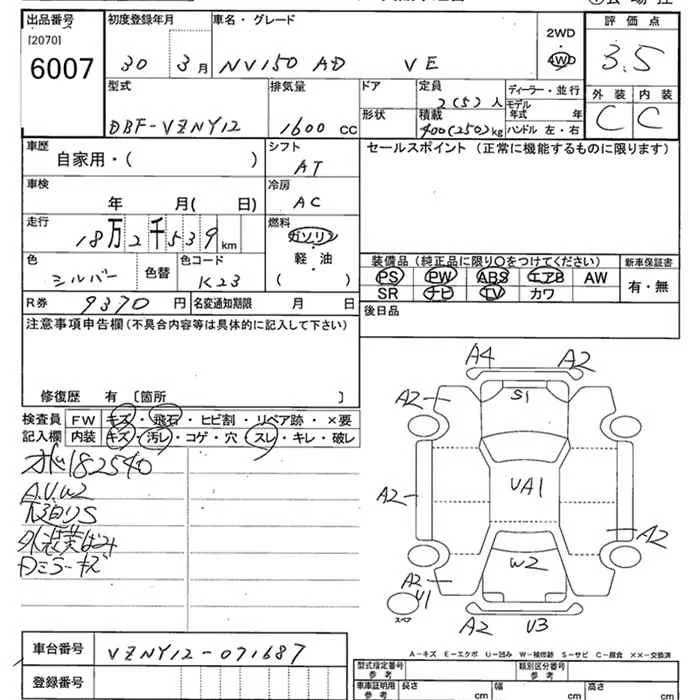 出品番号 初度登録年月 車名・グレード 2WD・4WD 評価点
[2070]
6007 30 3月 NV150 AD VE 3.5
型式 排気量 ドア 定員 ディーラー・並行 外装 内装
2(5)人 モデル年式 年
DBF-VZNY12 1600 CC 形状 積載 400(250)kg ハンドル 左・右 C C
車歴 シフト セールスポイント (正常に機能するものに限ります)
自家用・( ) AT
車検 冷房
年 月( 日) AC
走行 燃料
18万2千539km ガソリン
軽・油
( )
色 色替 色コード
シルバー K23
装備品 (純正品に限り○をつけてください) 新車保証書
PS PW ABS エアB AW 有・無
SR ナビ TV カワ
R券 9370円 名変通知期限 月 日
後日品
注意事項申告欄 (不具合内容等は具体的に記入して下さい)
修復歴 有 〔箇所 〕
検査員 FW キズ・飛石・ヒビ割・リペア跡・×要
記入欄 内装 キズ・汚レ・コゲ・穴・スレ・キレ・破レ
182540
A.U.W2
外装
ミラーキズ
A4 A2
A2 S1 A2
A2 UA1 A2
W2
A2
U1
スペア
A2 U3
A-キズ E-エクボ U-凹み W-補修跡 S-サビ C-腐食 ××-交換済
車台番号 VZNY12-071687
登録番号
型式指定番号 参考 類別区分番号 参考
車車証明用 参考 長さ cm 幅 cm 高さ cm